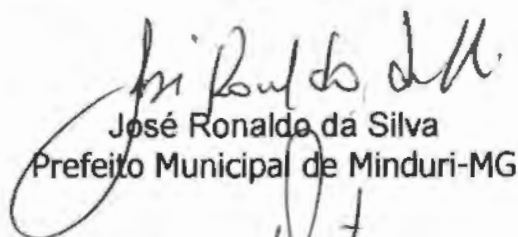 José Ronaldo da Silva
Prefeito Municipal de Minduri-MG